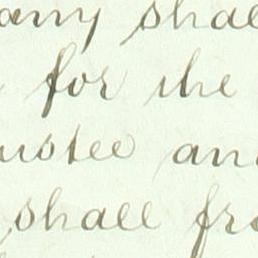 any shal
for the
ustee an
shall fro